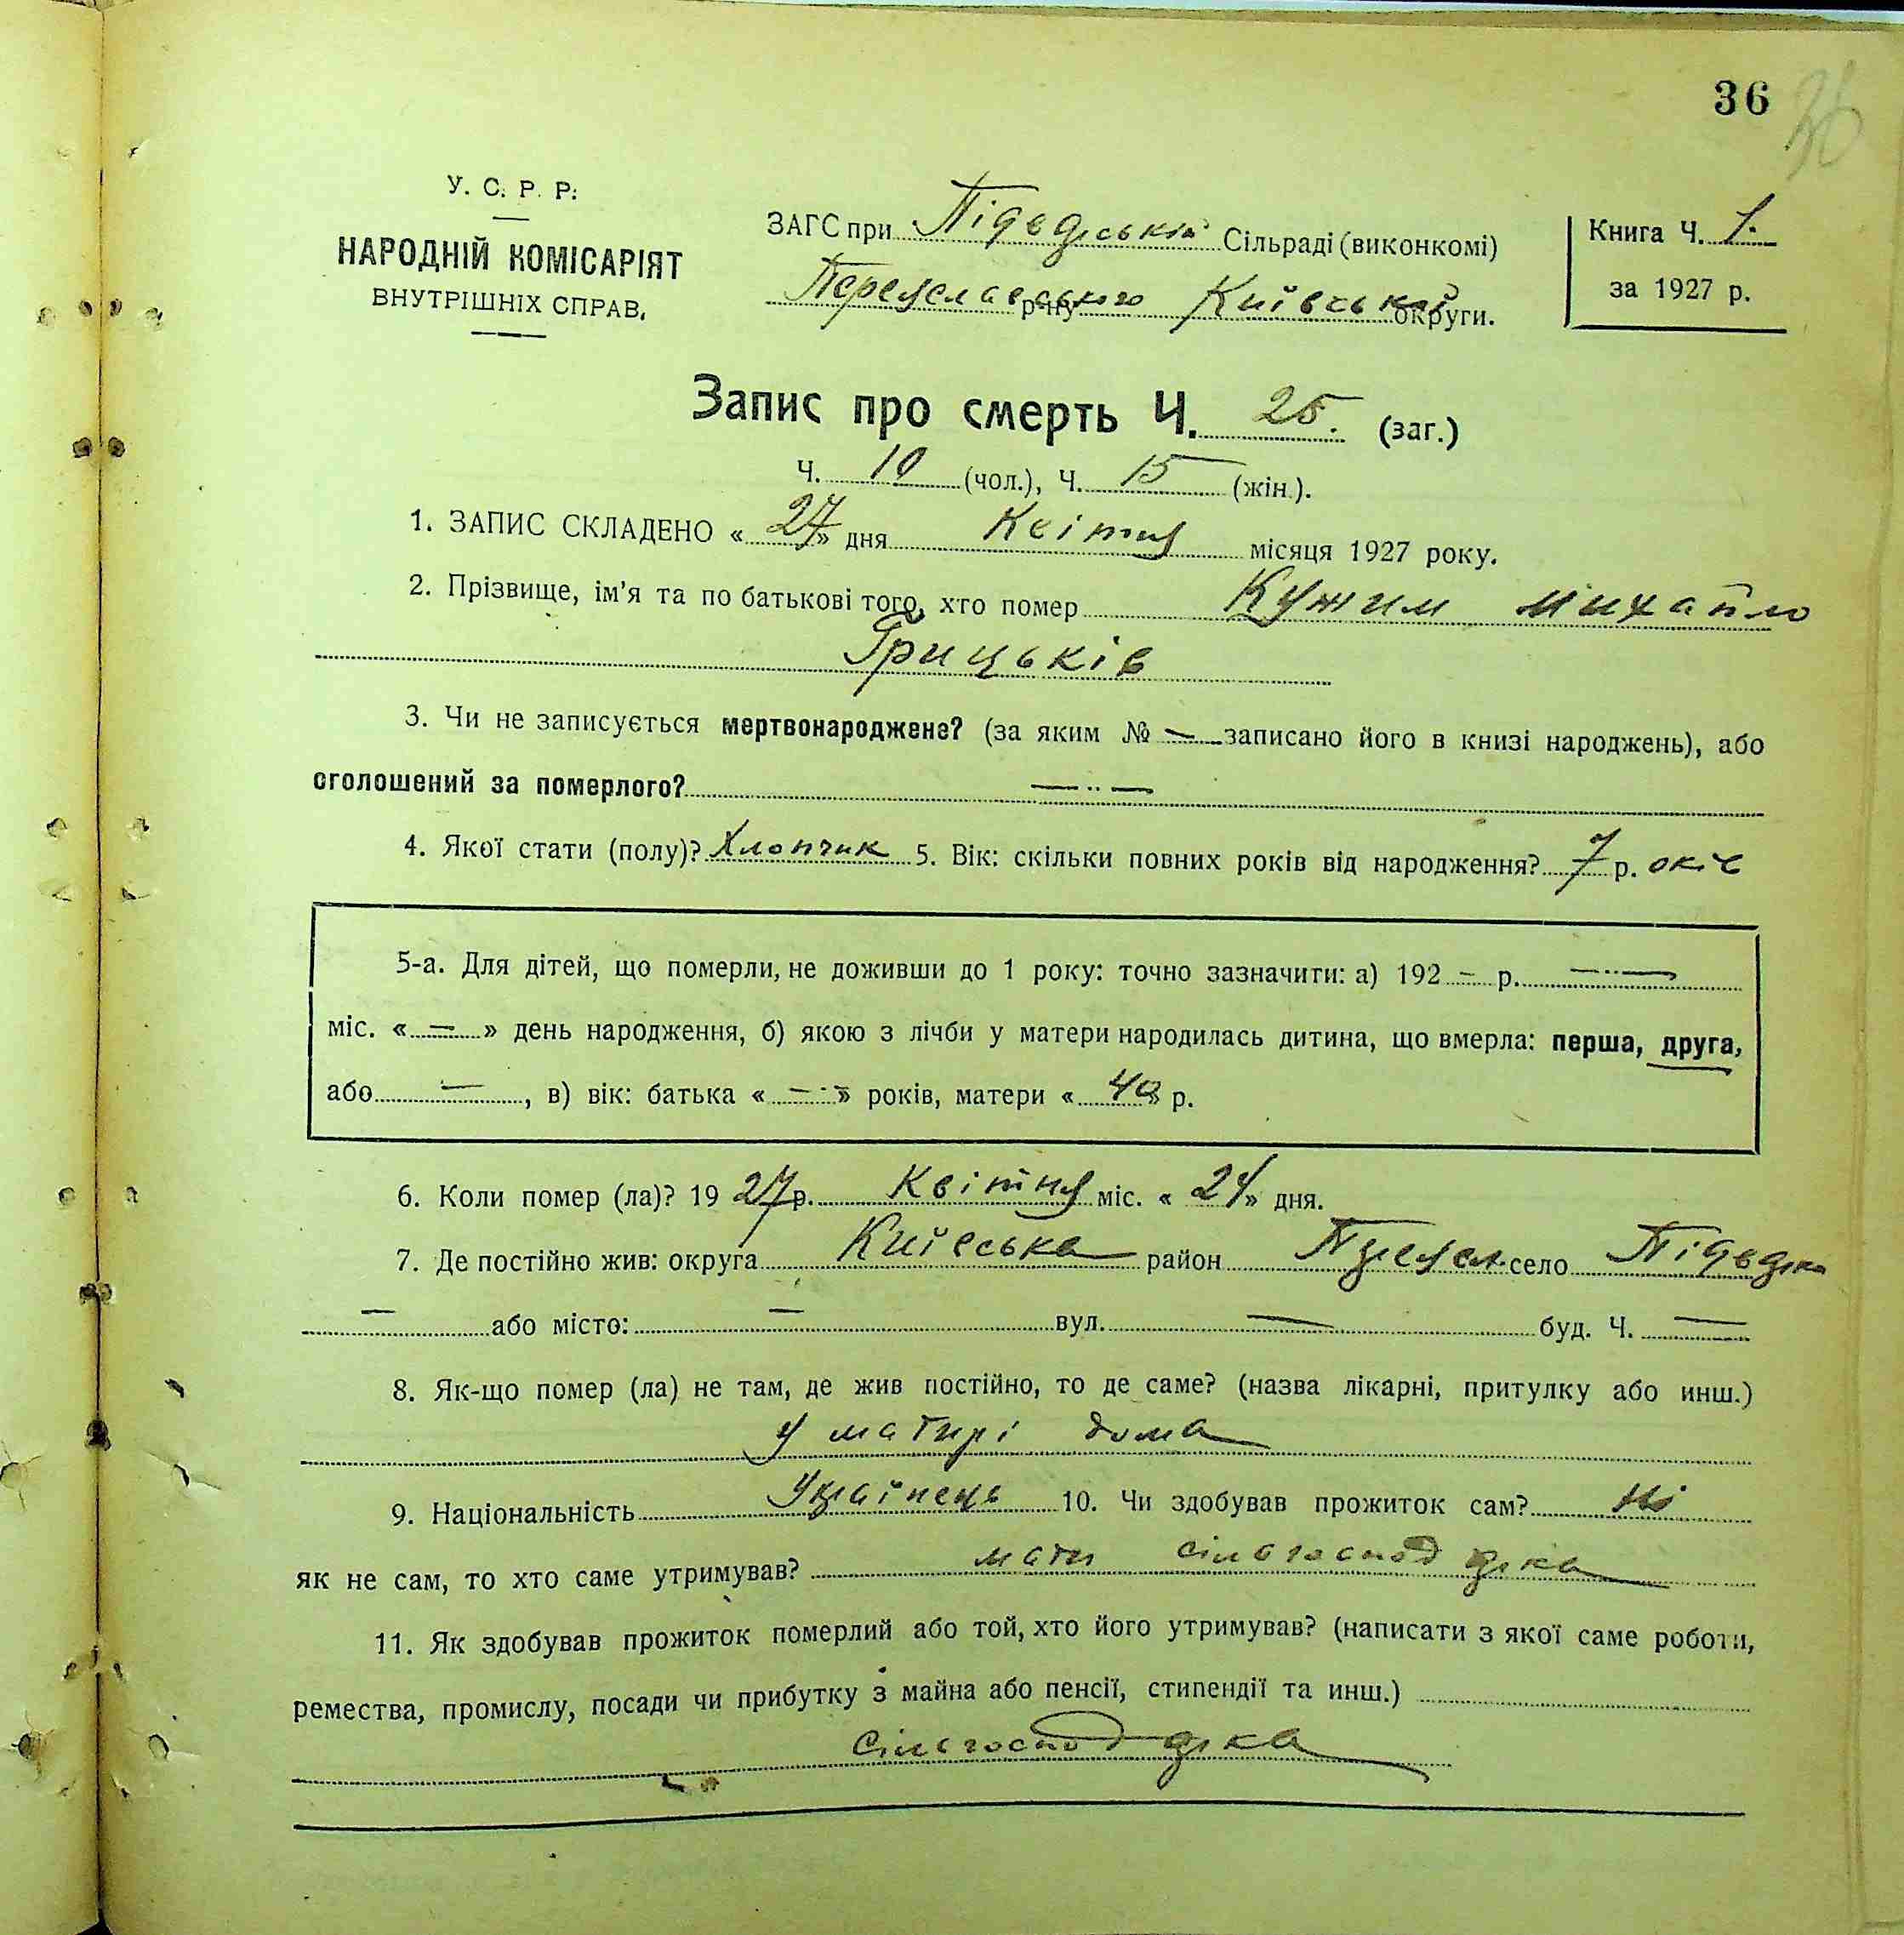 36
36
У. С. Р. Р.
НАРОДНІЙ КОМІСАРІЯТ
ВНУТРІШНІХ СПРАВ.
ЗАГС при Підвдській Сільраді (виконкомі)
Переяславського р-ну Київської округи.
Книга Ч. 1.
за 1927 р.
Запис про смерть Ч. 25. (заг.)
Ч. 10 (чол.), Ч. 15 (жін.).
1. ЗАПИС СКЛАДЕНО « 27 » дня Квітня місяця 1927 року.
2. Прізвище, ім'я та по батькові того, хто помер Кужим Михайло
Грицьків
3. Чи не записується мертвонароджене? (за яким № — записано його в книзі народжень), або
оголошений за померлого? — „ —
4. Якої стати (полу)? Хлопчик 5. Вік: скільки повних років від народження? 7 р. оків
5-а. Для дітей, що померли, не доживши до 1 року: точно зазначити: а) 192 – р. — „ —
міс. « — » день народження, б) якою з лічби у матери народилась дитина, що вмерла: перша, друга,
або — , в) вік: батька « — » років, матери « 40 » р.
6. Коли помер (ла)? 19 27 р. Квітня міс. « 24 » дня.
7. Де постійно жив: округа Київська район Переясл. село
— або місто: — вул. — буд. Ч. —
8. Як-що помер (ла) не там, де жив постійно, то де саме? (назва лікарні, притулку або инш.)
у матирі дома
9. Національність Українець 10. Чи здобував прожиток сам? Ні
як не сам, то хто саме утримував? мати сільгосподарка
11. Як здобував прожиток померлий або той, хто його утримував? (написати з якої саме роботи,
ремества, промислу, посади чи прибутку з майна або пенсії, стипендії та инш.)
сільгосподарка